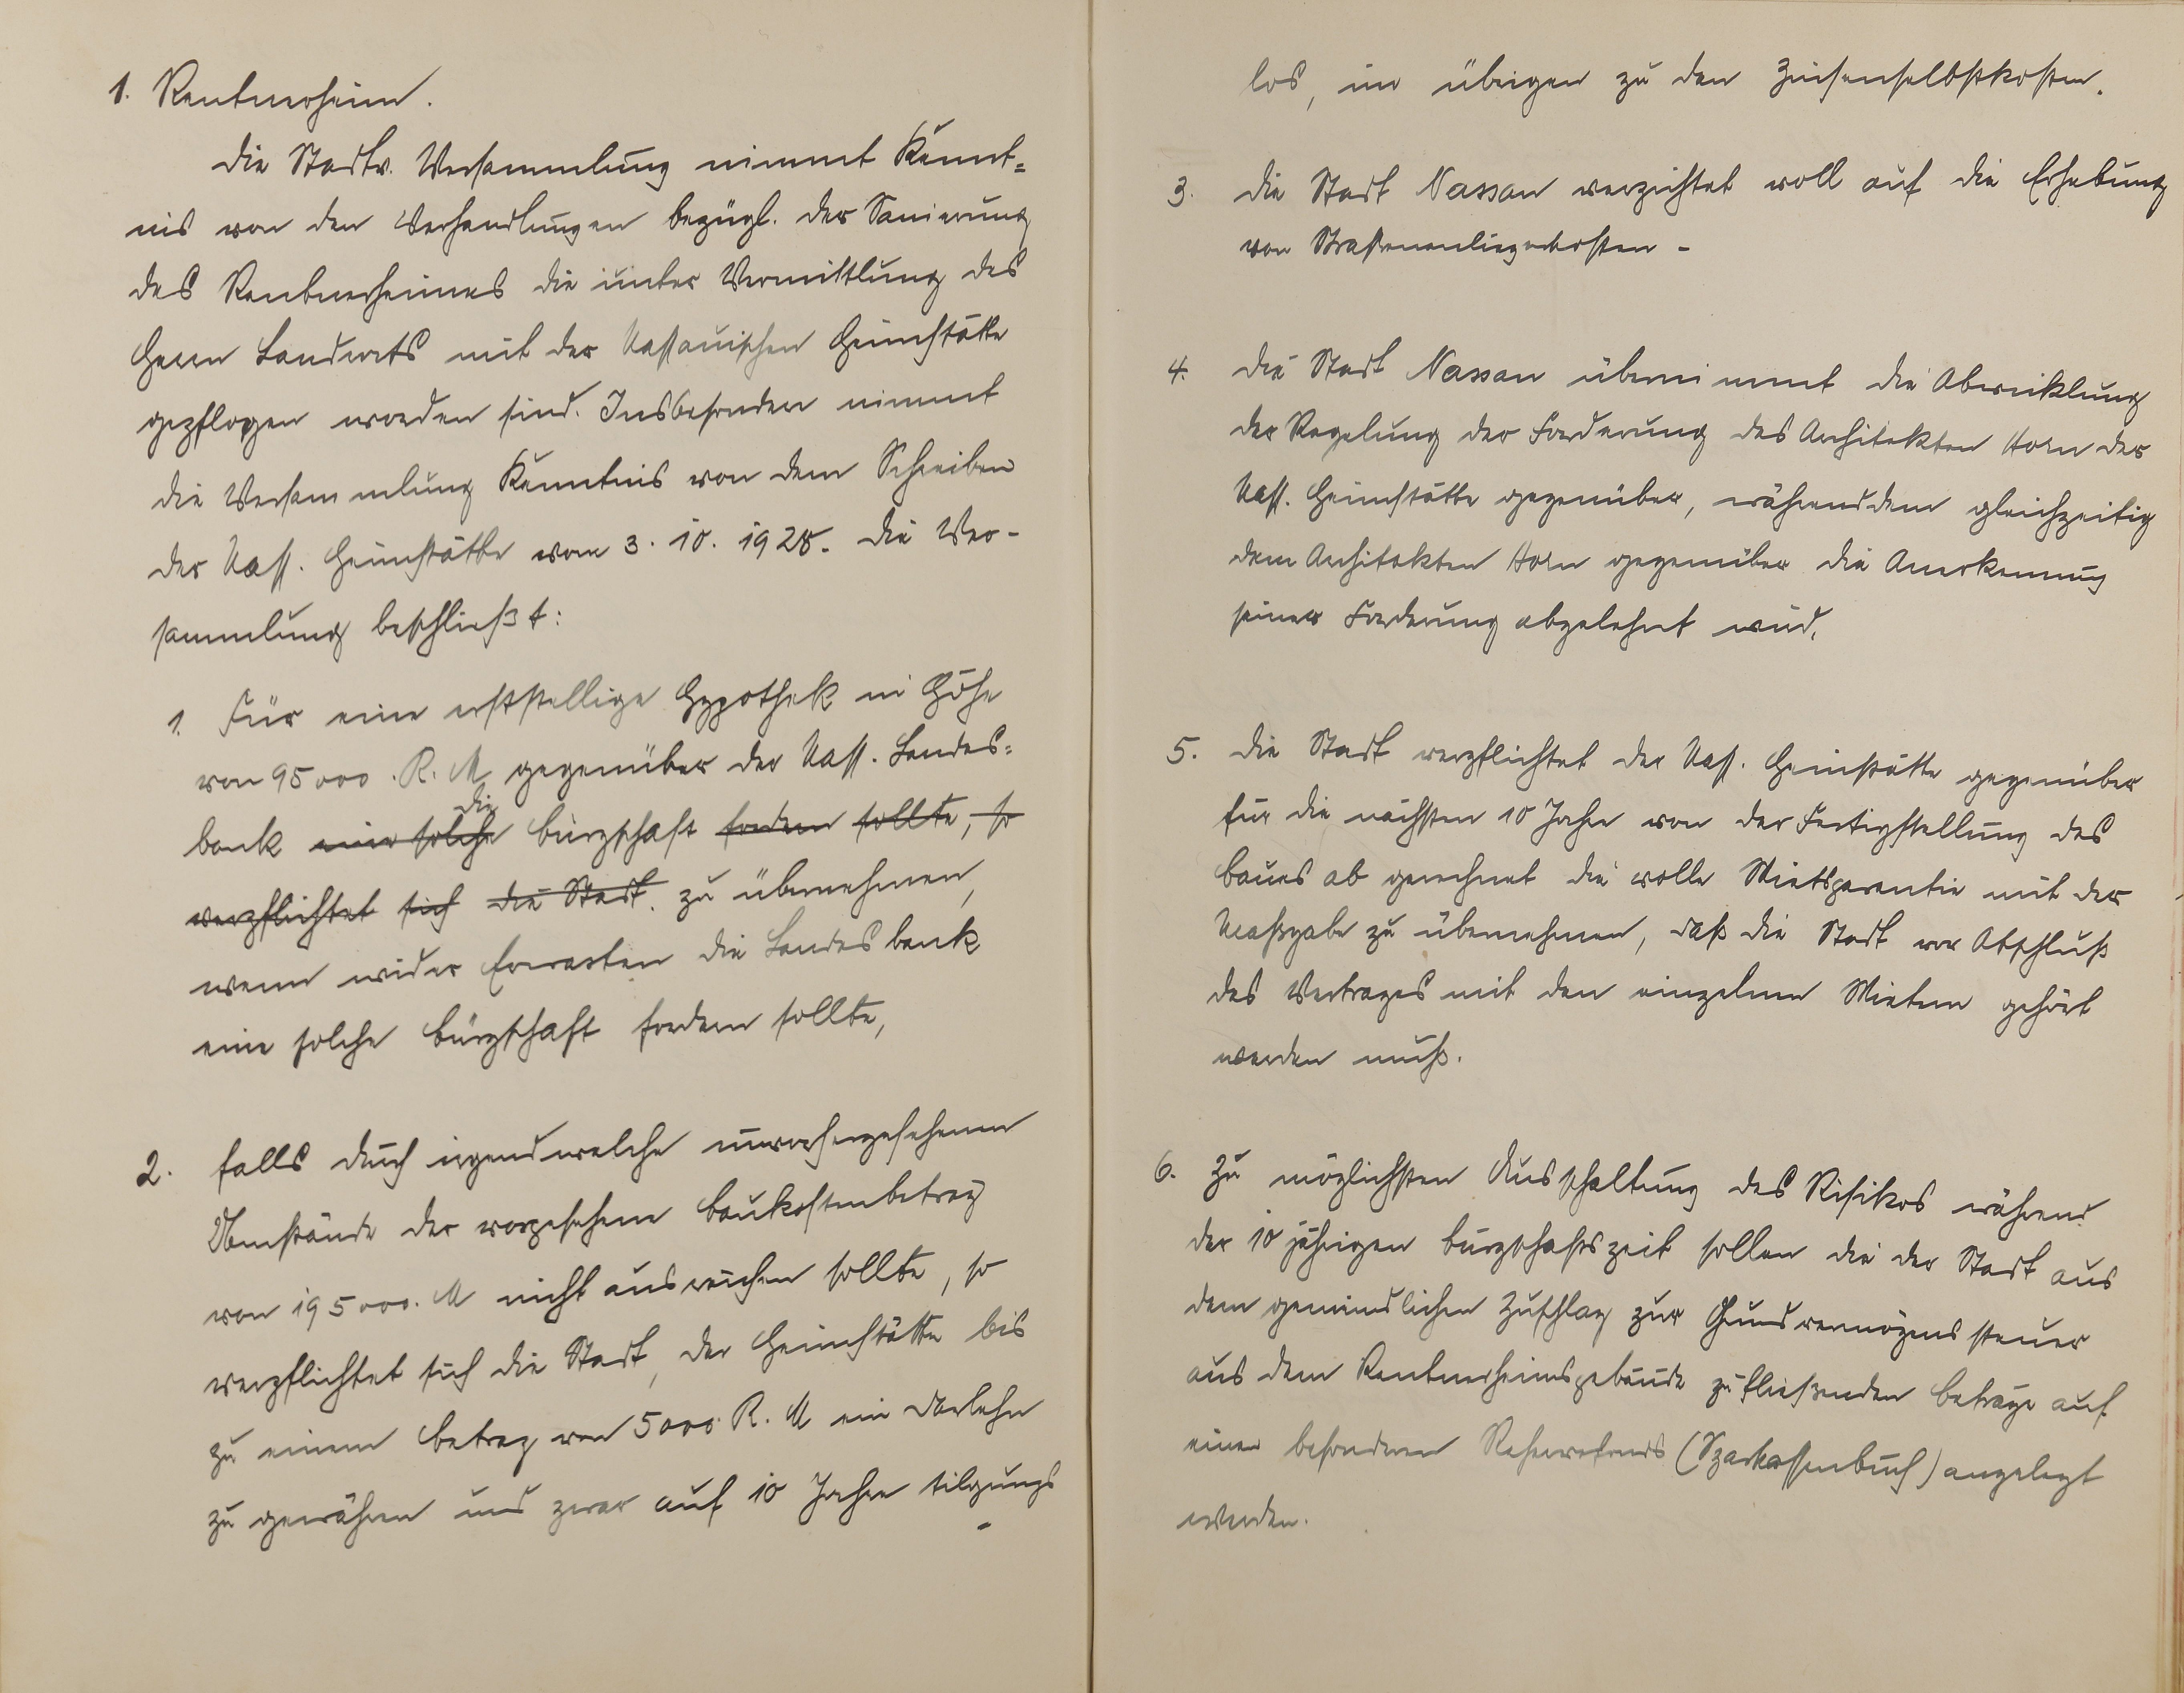 1. Rentnerheim.
Die Stadtv. Versammlung nimmt Kennt=
nis von den Verhandlungen bezügl. der Sanierung
des Rentnerheimes die unter Vermittlung des
Herrn Landrats mit der Nassauischen Heimstätte
gepflogen worden sind. Insbesondere nimmt
die Versammlung Kenntnis von dem Schreiben
der Nass. Heimstätte vom 3. 10. 1928. Die Ver-
sammlung beschließt:
1. Für eine erststellige Hypothek in Höhe
von 95000. R. M gegenüber der Nass. Landes=
die
bank eine solche Bürgschaft fordern sollte, so
verpflichtet sich die Stadt. zu übernehmen,
wenn wider Erwarten die Landesbank
eine solche Bürgschaft fordern sollte,
2. falls durch irgendwelche unvorhergesehenen
Umstände der vorgesehene Baukostenbetrag
von 195000. M nicht ausreichen sollte, so
verpflichtet sich die Stadt, der Heimstätte bis
zu einem Betrag von 5000 R. M ein Darlehn
zu gewähren und zwar auf 10 Jahre tilgungs
-
los, im übrigen zu den Zinsenselbstkosten.
3. Die Stadt Nassau verzichtet voll auf die Erhebung
von Strassenanliegerkosten -
4. Die Stadt Nassau übernimmt die Abwicklung
der Regelung der Forderung des Architekten Horn der
Nass. Heimstätte gegenüber, währenddem gleichzeitig
dem Architekten Horn gegenüber die Anerkennung
seiner Forderung abgelehnt wird.
5. Die Stadt verpflichtet der Nass. Heimstätte gegenüber
für die nächsten 10 Jahre von der Fertigstellung des
Baues ab gerechnet die volle Mietsgarantie mit der
Maßgabe zu übernehmen, daß die Stadt vor Abschluß
des Vertrages mit den einzelnen Mietern gehört
werden muß.
6. Zu möglichsten Ausschaltung des Risikos während
der 10 jährigen Bürgschaftszeit sollen die der Stadt aus
dem gemeindlichen Zuschlag zur Grundvermögenssteuer
aus dem Rentnerheimsgebäude zufließenden Beträge auf
einen besonderen Reservefonds (Sparkassenbuch) angelegt
werden.